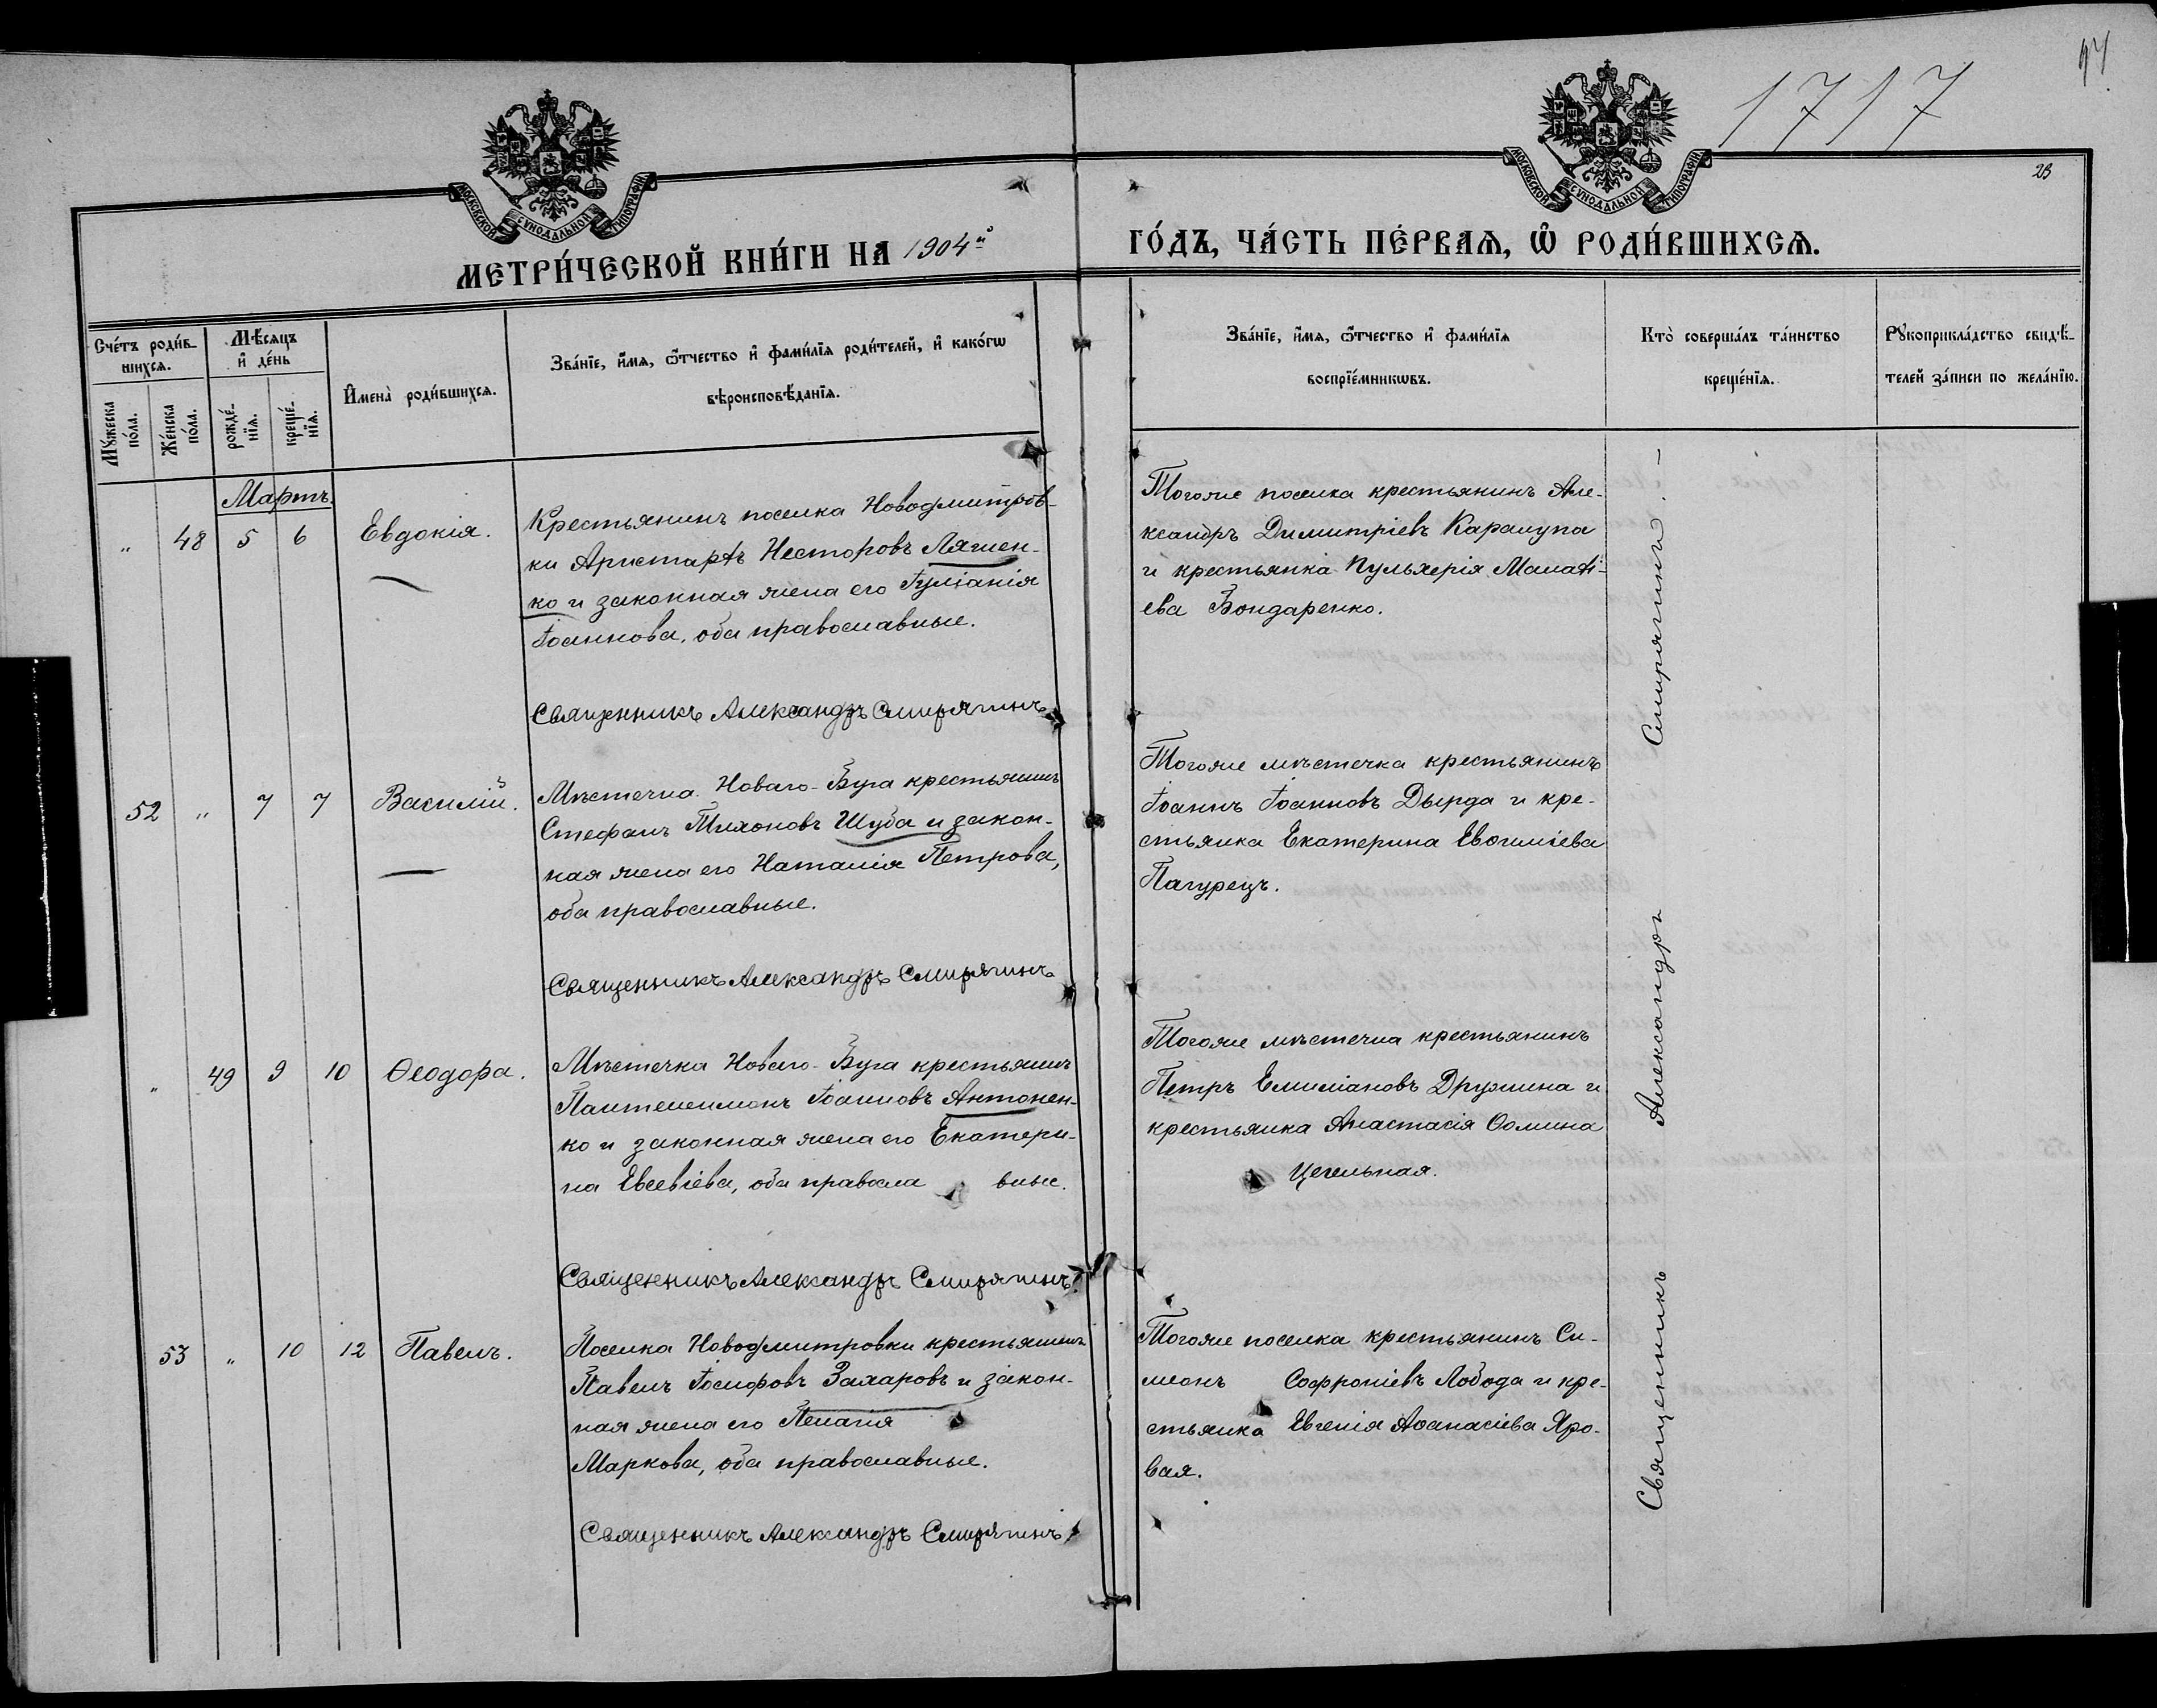 МОСКОВСКОЙ СѴНОДАЛЬНОЙ ТИПОГРАФІИ
МОСКОВСКОЙ СѴНОДАЛЬНОЙ ТИПОГРАФІИ
1717
23
МЕТРИ́ЧЕСКОЙ КНИ́ГИ НА 1904й
ГО́ДЪ, ЧА́СТЬ ПЕ́РВАѦ, Ѡ҆ РОДИ́ВШИХСѦ.
Сче́тъ роди́в-
шихсѧ.
Мꙋ́жеска по́ла.
Же́нска по́ла.
Мѣ́сѧцъ
и҆ де́нь
рожде́-
нїѧ.
креще́-
нїѧ.
И҆мена̀ роди́вшихсѧ.
Зва́нїе, и҆́мѧ, ѻ҆́тчество и҆ фами́лїѧ роди́телей, и҆ како́гѡ
вѣроисповѣ́данїѧ.
Зва́нїе, и҆́мѧ, ѻ҆́тчество и҆ фами́лїѧ
воспрїе́мникѡвъ.
Кто̀ соверша́лъ та́инство
креще́нїѧ.
Рꙋкоприкла́дство свидѣ́-
телей за́писи по жела́нїю.
Мартъ.
„ 48 5 6 Евдокія.
Крестьянинъ поселка Новодмитров-
ки Аристархъ Несторовъ Ляшен-
ко и законная жена его Іуліанія
Іоаннова, оба православные.
Священникъ Александръ Смирягинъ
Тогоже поселка крестьянинъ Але-
ксандръ Димитріевъ Каралупа
и крестьянка Пульхерія Малахі-
ева Бондаренко.
52 „ 7 7 Василій.
Мѣстечка Новаго-Буга крестьянинъ
Стефанъ Тихоновъ Шуба и закон-
ная жена его Наталія Петрова,
оба православные.
Священникъ Александръ Смирягинъ
Тогоже мѣстечка крестьянинъ
Іоаннъ Іоанновъ Дырда и кре-
стьянка Екатерина Евѳиміева
Пагурецъ.
„ 49 9 10 Ѳеодора.
Мѣстечка Новаго-Буга крестьянинъ
Пантелеимонъ Іоанновъ Антонен-
ко и законная жена его Екатери-
на Евсевіева, оба правосла вные.
Священникъ Александръ Смирягинъ
Тогоже мѣстечка крестьянинъ
Петръ Емиліановъ Дружина и
крестьянка Анастасія Ѳомина
Цегельная.
53 „ 10 12 Павелъ.
Поселка Новодмитровки крестьянинъ
Павелъ Іосифовъ Захаровъ и закон-
ная жена его Пелагія
Маркова, оба православные.
Священникъ Александръ Смирягинъ
Тогоже поселка крестьянинъ Си-
меонъ Софроніевъ Лобода и кре-
стьянка Евгенія Аѳанасіева Яро-
вая.
Священникъ Александръ Смирягинъ. —